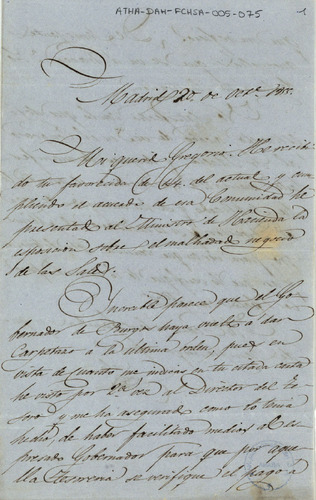 ATHA-DAH-FCHSA-005-075
1
Madrid 20 de Oct.e
Mi querido Gregorio: He recibi-
do tu favorecida de 14 del actual y cum-
pliendo el acuerdo de esa Comunidad he
presentado al Ministro de Hacienda la
esposicion sobre el malhadado negocio
de las Salas.
Increible parece que el Go-
bernador de Burgos haya vuelto a dar
Carpetazo a la última orden, pues en
vista de cuanto me indicas en tu citada carta
he visto por 2.a vez al Director del Te-
soro y me ha asegurado como lo tenia
hecho, de haber facilitado medios al es-
presado Gobernador para que por aque-
lla Tesoreria se verifique el pago á